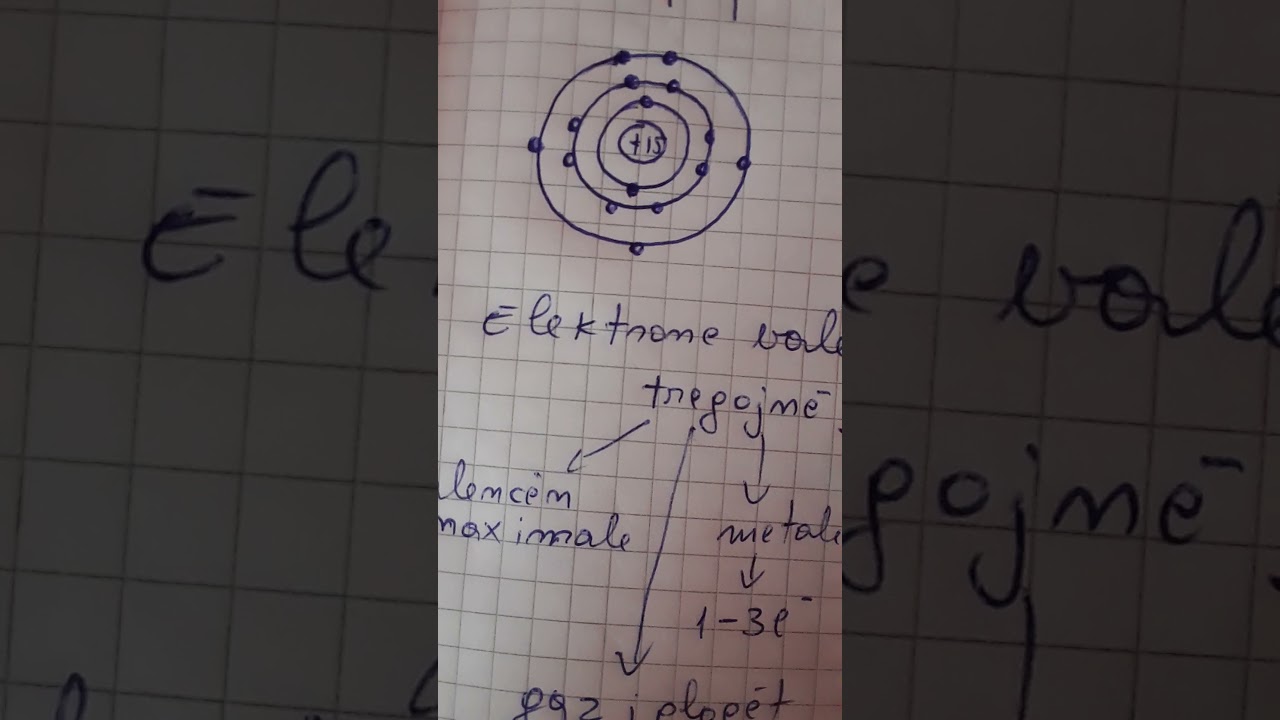 +15
Elektrone vale
tregojnë
lencën
maximale
metale
1-3e⁻
gaz i plogët